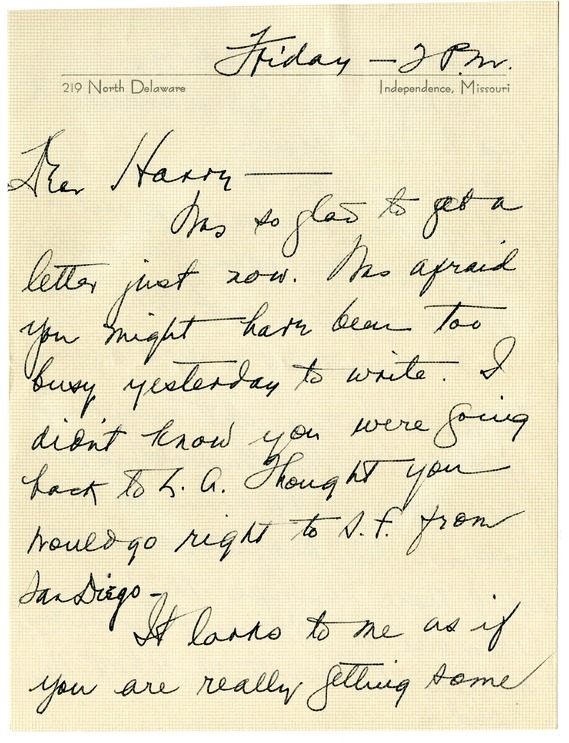 Friday — 2 P.M.
219 North Delaware Independence, Missouri
Dear Harry —
Was so glad to get a
letter just now. Was afraid
you might have been too
busy yesterday to write. I
didn't know you were going
back to L. A. Thought you
would go right to S. F. from
San Diego -
It looks to me as if
you are really getting some